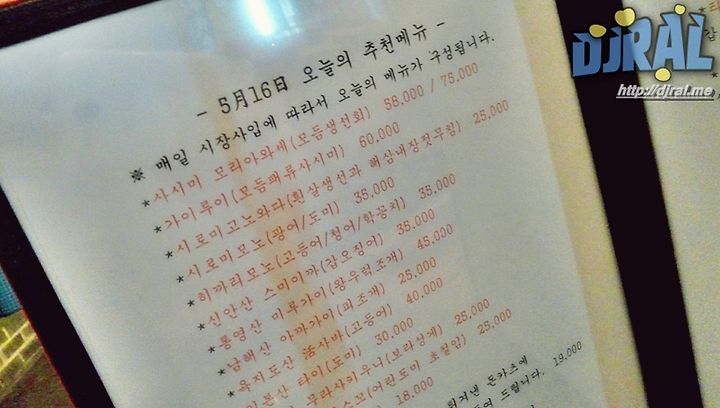 - 5月16日 오늘의 추천메뉴 -
※ 매일 시장사입에 따라서 오늘의 메뉴가 구성됩니다.
*사시미 모리아와세(모듬생선회) 58,000 / 75,000
*가이루이(모듬패류사시미) 60,000
*시로미고노와다(흰살생선과 해삼내장젓무침) 25,000
*시로미모노(광어/도미) 35,000
*히까리모노(고등어/청어/학꽁치) 35,000
*신안산 스미이까(갑오징어) 35,000
*통영산 미루가이(왕우럭조개) 45,000
*남해산 아까가이(피조개) 25,000
*욕지도산 活사바(고등어) 40,000
*일본산 타이(도미) 30,000
무라사키우니(보라성게) 25,000
(어린도미 초절임) 25,000
18,000
튀겨낸 돈카츠에
드립니다. 19,000
DJRAL
http://djral.me